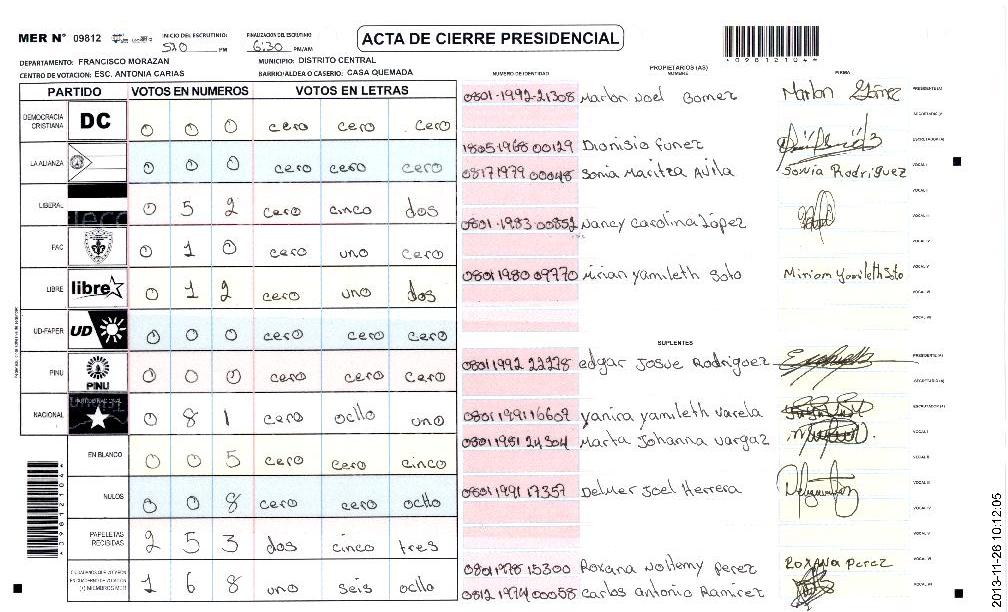 MER N° 09812
INICIO DEL ESCRUTINIO: 5:20 PM
FINALIZACION DEL ESCRUTINIO 6:30 PM/AM
ACTA DE CIERRE PRESIDENCIAL
*098121044*
DEPARTAMENTO: FRANCISCO MORAZAN
MUNICIPIO: DISTRITO CENTRAL
CENTRO DE VOTACION: ESC. ANTONIA CARIAS
BARRIO/ALDEA O CASERIO: CASA QUEMADA
PARTIDO VOTOS EN NUMEROS VOTOS EN LETRAS
DEMOCRACIA CRISTIANA DC 0 0 0 cero cero cero
LA ALIANZA 0 0 0 cero cero cero
LIBERAL 0 5 2 cero cinco dos
FAC 0 1 0 cero uno cero
LIBRE libre 0 1 2 cero uno dos
UD-FAPER UD 0 0 0 cero cero cero
PINU PINU 0 0 0 cero cero cero
NACIONAL 0 8 1 cero ocho uno
EN BLANCO 0 0 5 cero cero cinco
NULOS 0 0 8 cero cero ocho
PAPELETAS RECIBIDAS 2 5 3 dos cinco tres
CIUDADANOS QUE VOTARON EN CUADERNO DE VOTACION (+) MIEMBROS MER 1 6 8 uno seis ocho
NUMERO DE IDENTIDAD PROPIETARIOS (AS) NOMBRE FIRMA
0801-1992-21308 Marlon Noel Gomez Marlon Gómez PRESIDENTE (A)
SECRETARIO (A)
1805 1968 00129 Dionisio Funez ESCRUTADOR (A)
0817 1979 00048 Sonia Maritza Avila Sonia Rodriguez VOCAL I
VOCAL II
0801-1983 00852 Nancy Carolina López VOCAL III
VOCAL IV
0801 1980 09770 Mirian yamileth Soto Miriam Yamileth Soto VOCAL V
VOCAL VI
VOCAL VII
SUPLENTES
0801 1992 22278 edgar Josue Rodriguez PRESIDENTE (A)
SECRETARIO (A)
0801 1991 16609 yanira yamileth varela ESCRUTADOR (A)
0801 1981 24304 Marta Johanna vargaz VOCAL I
VOCAL II
0801 1991 17357 Delmer Joel Herrera VOCAL III
VOCAL IV
VOCAL V
0801 1978 15300 Roxana Wollemy perez Roxana Perez VOCAL VI
0812 1974 00058 Carlos antonio Ramirez VOCAL VII
2013-11-26 10:12:05